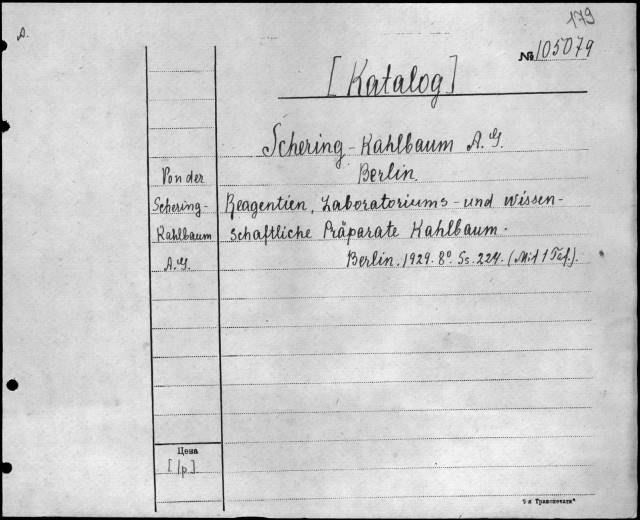 179
A.
№ 105079
[Katalog]
Schering-Kahlbaum A.G.
Berlin.
Von der
Schering-
Kahlbaum
A.G.
Reagentien, Laboratoriums- und wissen-
schaftliche Präparate Kahlbaum.
Berlin. 1929. 8° Ss. 224. (Mit 1 Taf.).
Цена
[1p.]